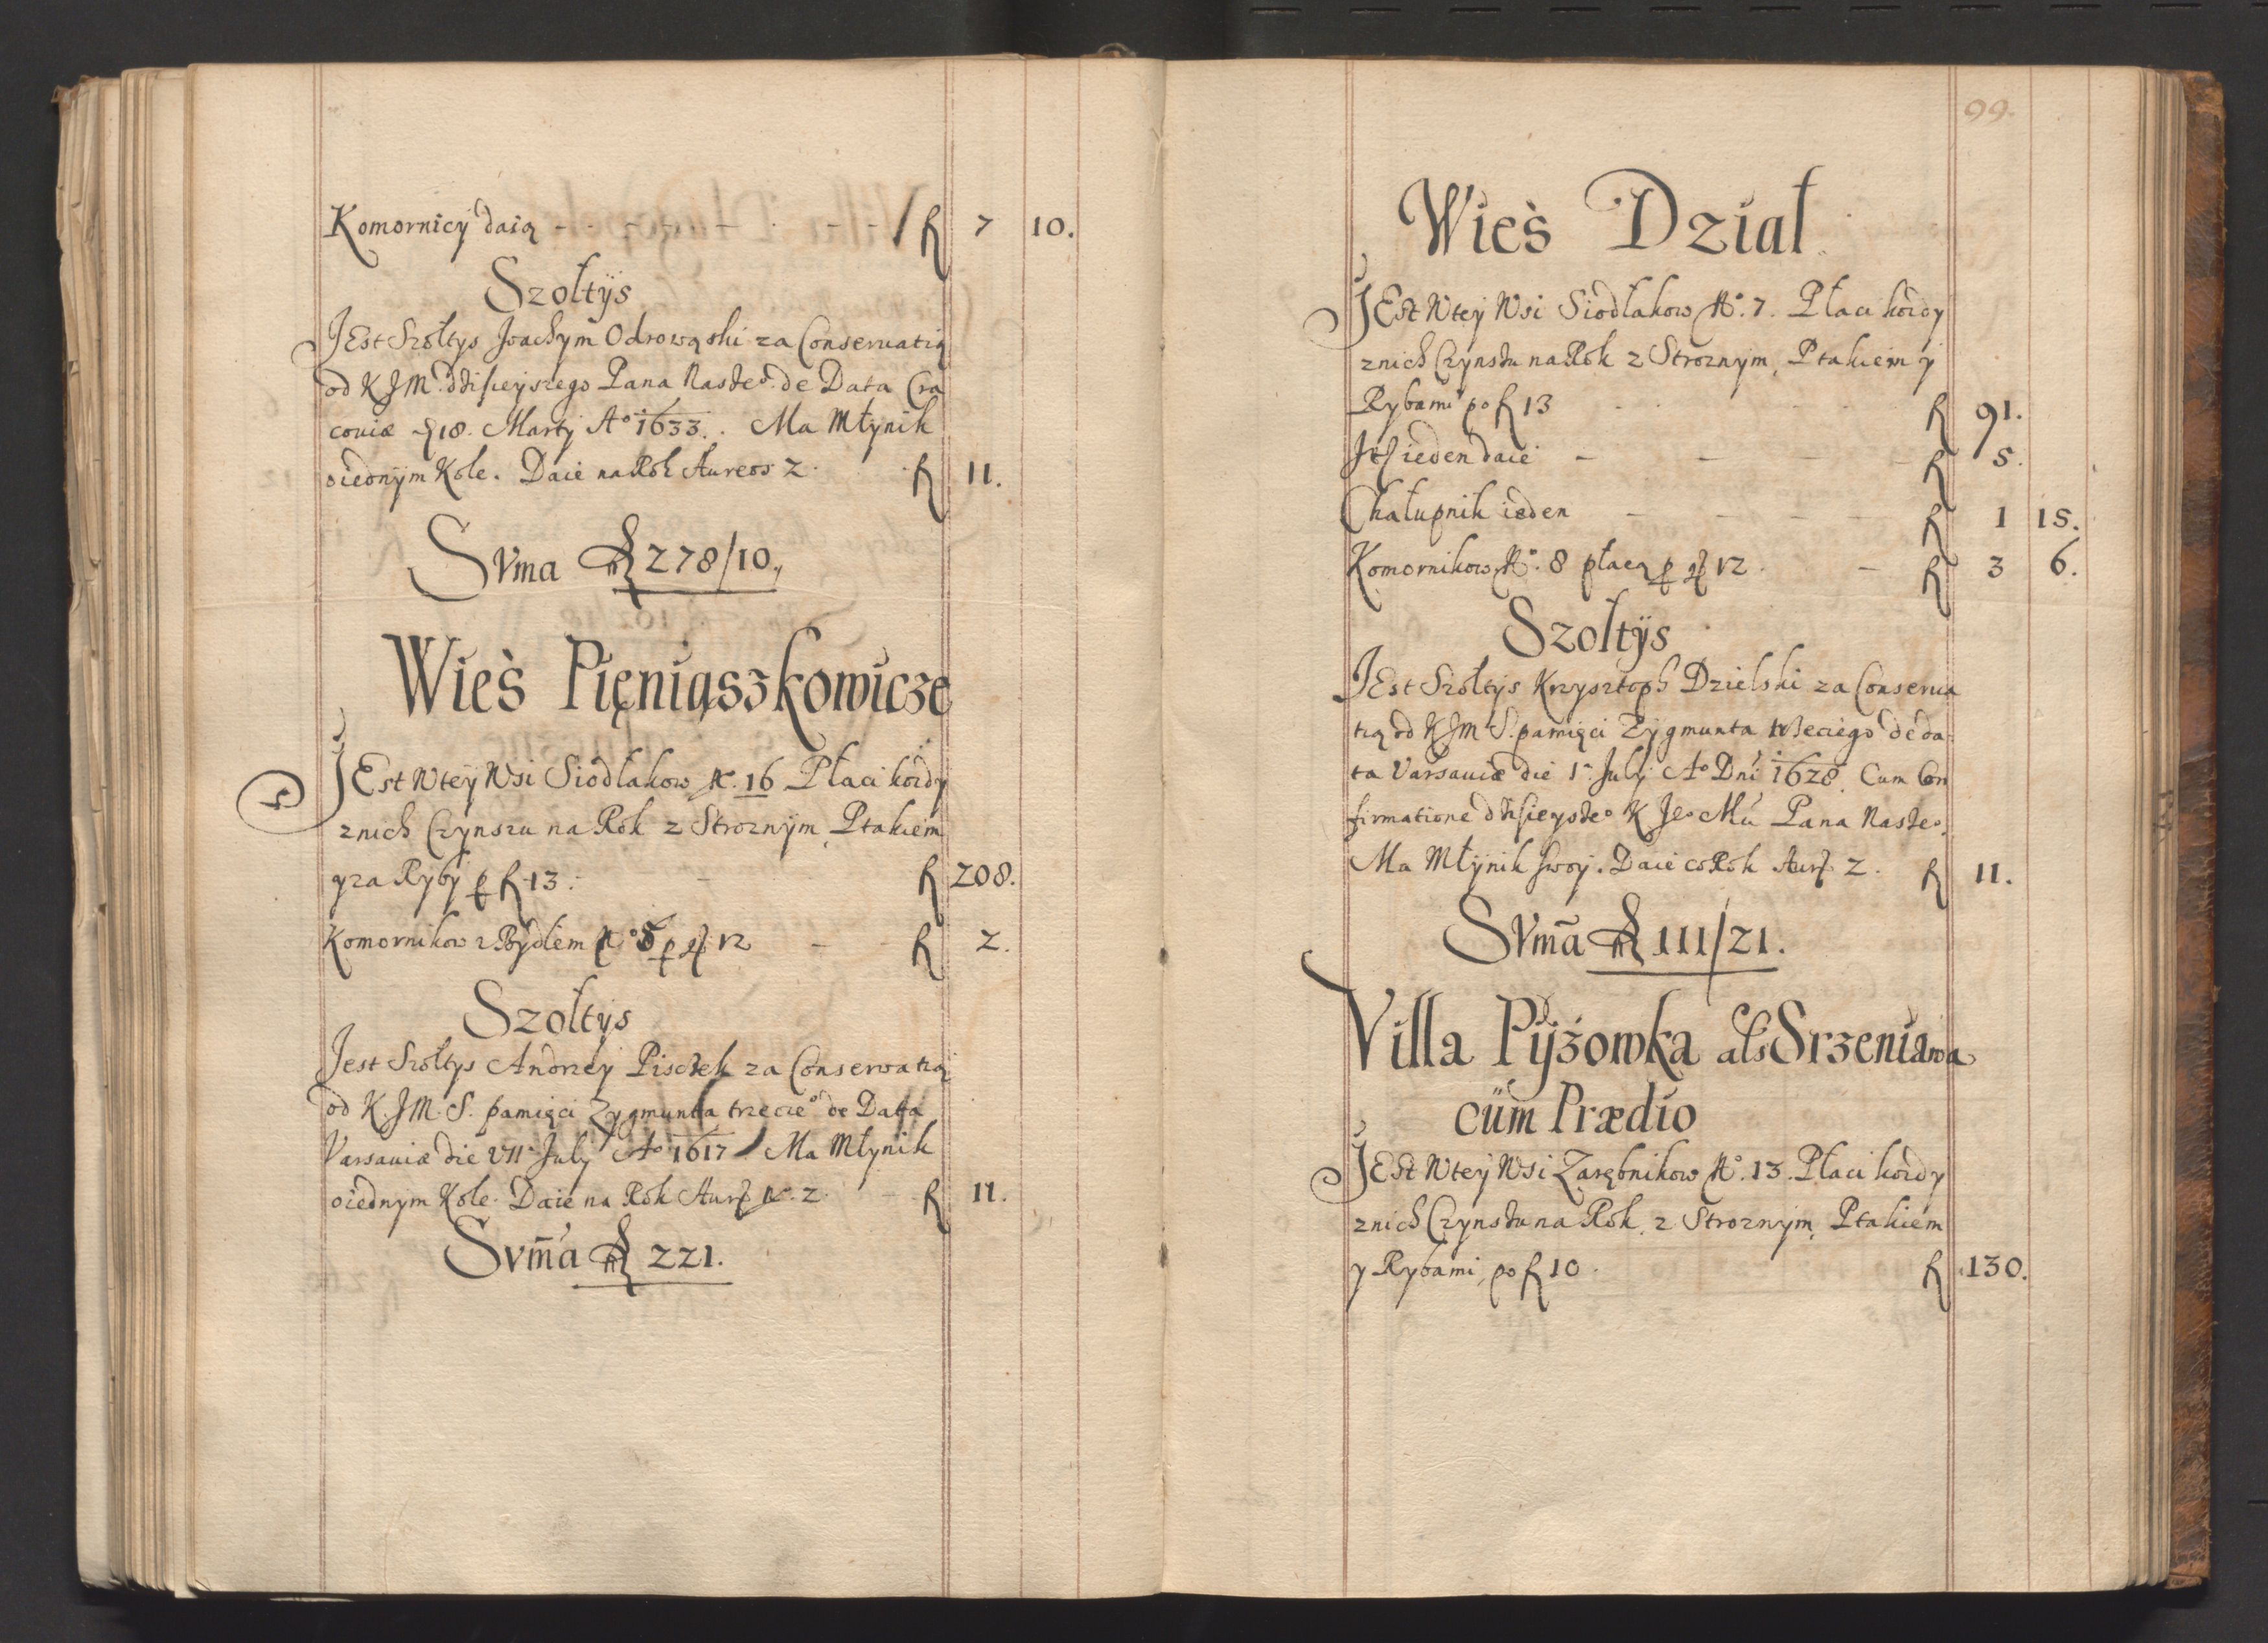 Komornicÿ daią - - - - - - - / fl 7 10.
Szołtÿs
JEst Szołtys Joachym Odrowąski za Conseruatią
od K J M. dzisieyszego Pana Nasze° de Data Cra
couiæ 18. Martÿ A° 1633. Ma Młynik
oiednÿm Kole. Daie na Rok Aureos 2. fl 11.
SVma fl 278/10.
Wieś Pięniąszkowicze
JEst Wteÿ Wsi Siodłakow N. 16 Płaci kożdy
znich Czynszu na Rok z Stroznÿm, Ptakiem
y za Rÿbÿ p fl 13. - fl 208.
Komornikow z Bÿdłem N° 5 p gr 12 - fl 2.
Szołtÿs
Jest Szołtys Andrzeÿ Pisczek za Conserwatią
od K. J M. S. pamięci Zygmunta trzecie° de Data
Varsauiæ die VII July A° 1617. Ma Młynik
oiednym Kole. Daie na Rok Aur N. 2. - fl 11.
SVm̃a fl 221.
99.
Wieś Dział
JEst Wteÿ Wsi Siodłakow N°. 7. Płaci kożdy
znich Czynszu na Rok z Stroznÿm, Ptakiem y
Rybami po fl 13 fl 91.
ieden daie - - - - fl 5.
Chałupnik ieden - - - - fl 1 15.
Komornikow N°. 8 płacą p gr 12. - fl 3 6.
Szołtÿs
JEst Szołtÿs Krzysztoph Dzielski za Conserua
tią od KJM S. pamięci Zÿgmunta trzeciego de da
ta Varsauiæ die 1. Julÿ A° Dni 1628. Cum Con
firmatione dzisieysze° K Je° Mći Pana Nasze°.
Ma Młÿnik swoÿ. Daie co Rok Aur. 2. fl 11.
SVm̃a fl 111/21.
Villa Pÿżowka als Srzeniawa
cüm Prædio
JEst Wteÿ Wsi Zarębnikow N°. 13. Płaci kożdy
znich Czynszu na Rok, z Stroznÿm, Ptakiem
y Rybami, po fl 10. fl 130.